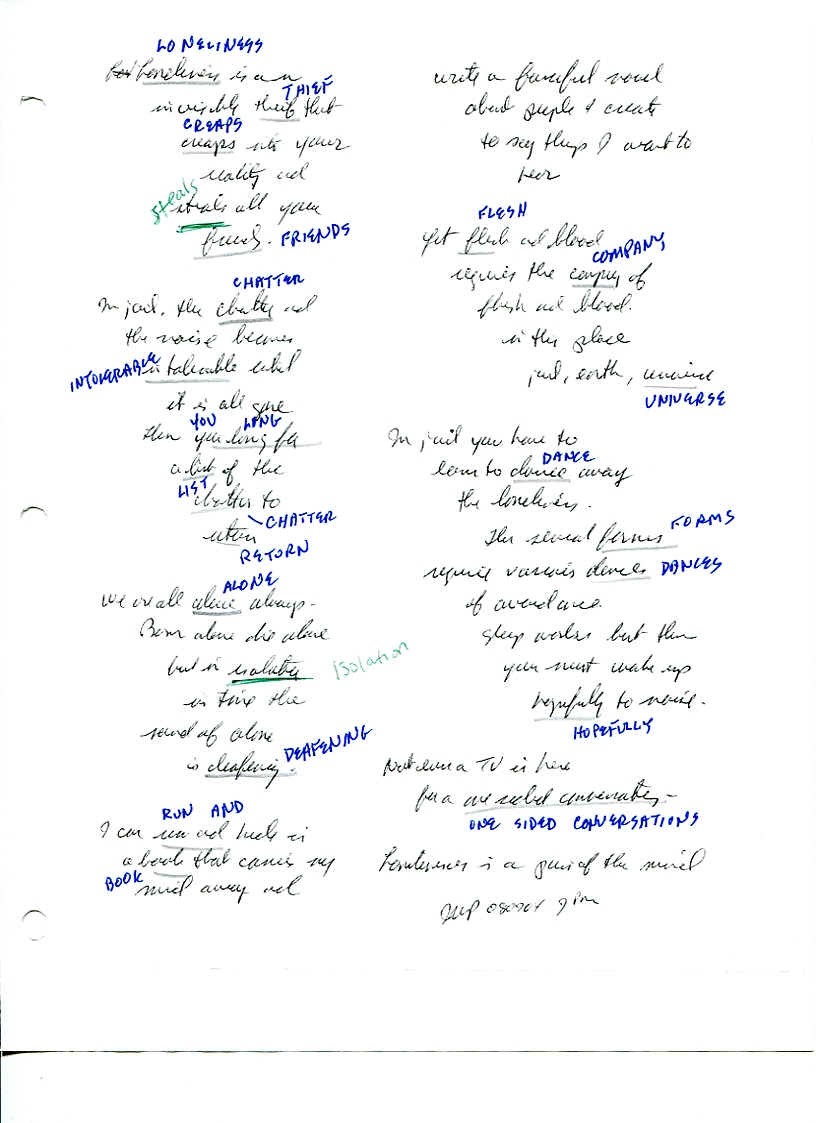 LONELINESS
Loneliness is an
THIEF
invisible theif that
CREAPS
creaps into your
reality and
steals
steals all your
friends. FRIENDS
CHATTER
In jail, the chatter and
the noise becomes
INTOLERABLE intolerable until
it is all gone
YOU LONG
then you long for
a list of the
LIST
chatter to
CHATTER
return
RETURN
ALONE
We are all alone always -
Born alone die alone
but in isolation Isolation
in time the
sound of alone
is deafening. DEAFENING
RUN AND
I can run and hide in
a book that carries my
BOOK mind away and
write a fanciful novel
about people & create
to say things I want to
hear
FLESH
Yet flesh and blood
COMPANY
requires the company of
flesh and blood.
in this place
jail, earth, universe
UNIVERSE
In jail you have to
DANCE
learn to dance away
the loneliness.
The several forms FORMS
require various dances DANCES
of avoidance.
Sleep works but then
you must wake up
hopefully to noise.
HOPEFULLY
Not even a TV is here
for a one sided conversation -
ONE SIDED CONVERSATIONS
Loneliness is a game of the mind
080904 9 pm